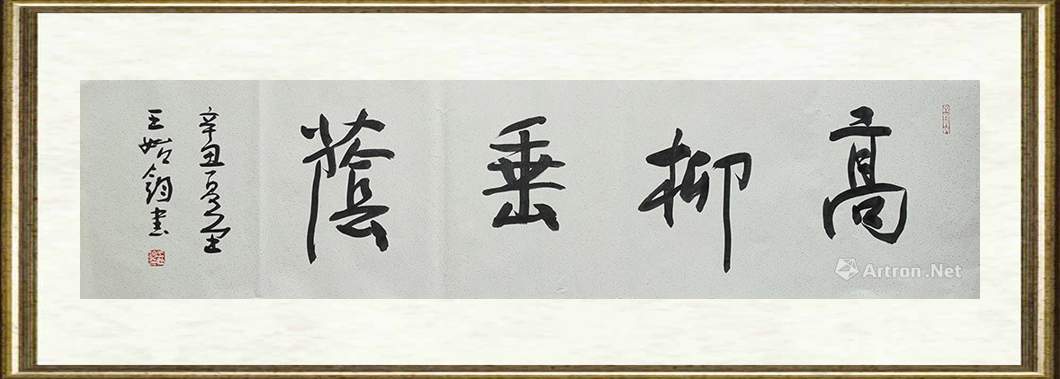 高柳垂蔭
辛丑夏至
王始鈞書
Artron.Net